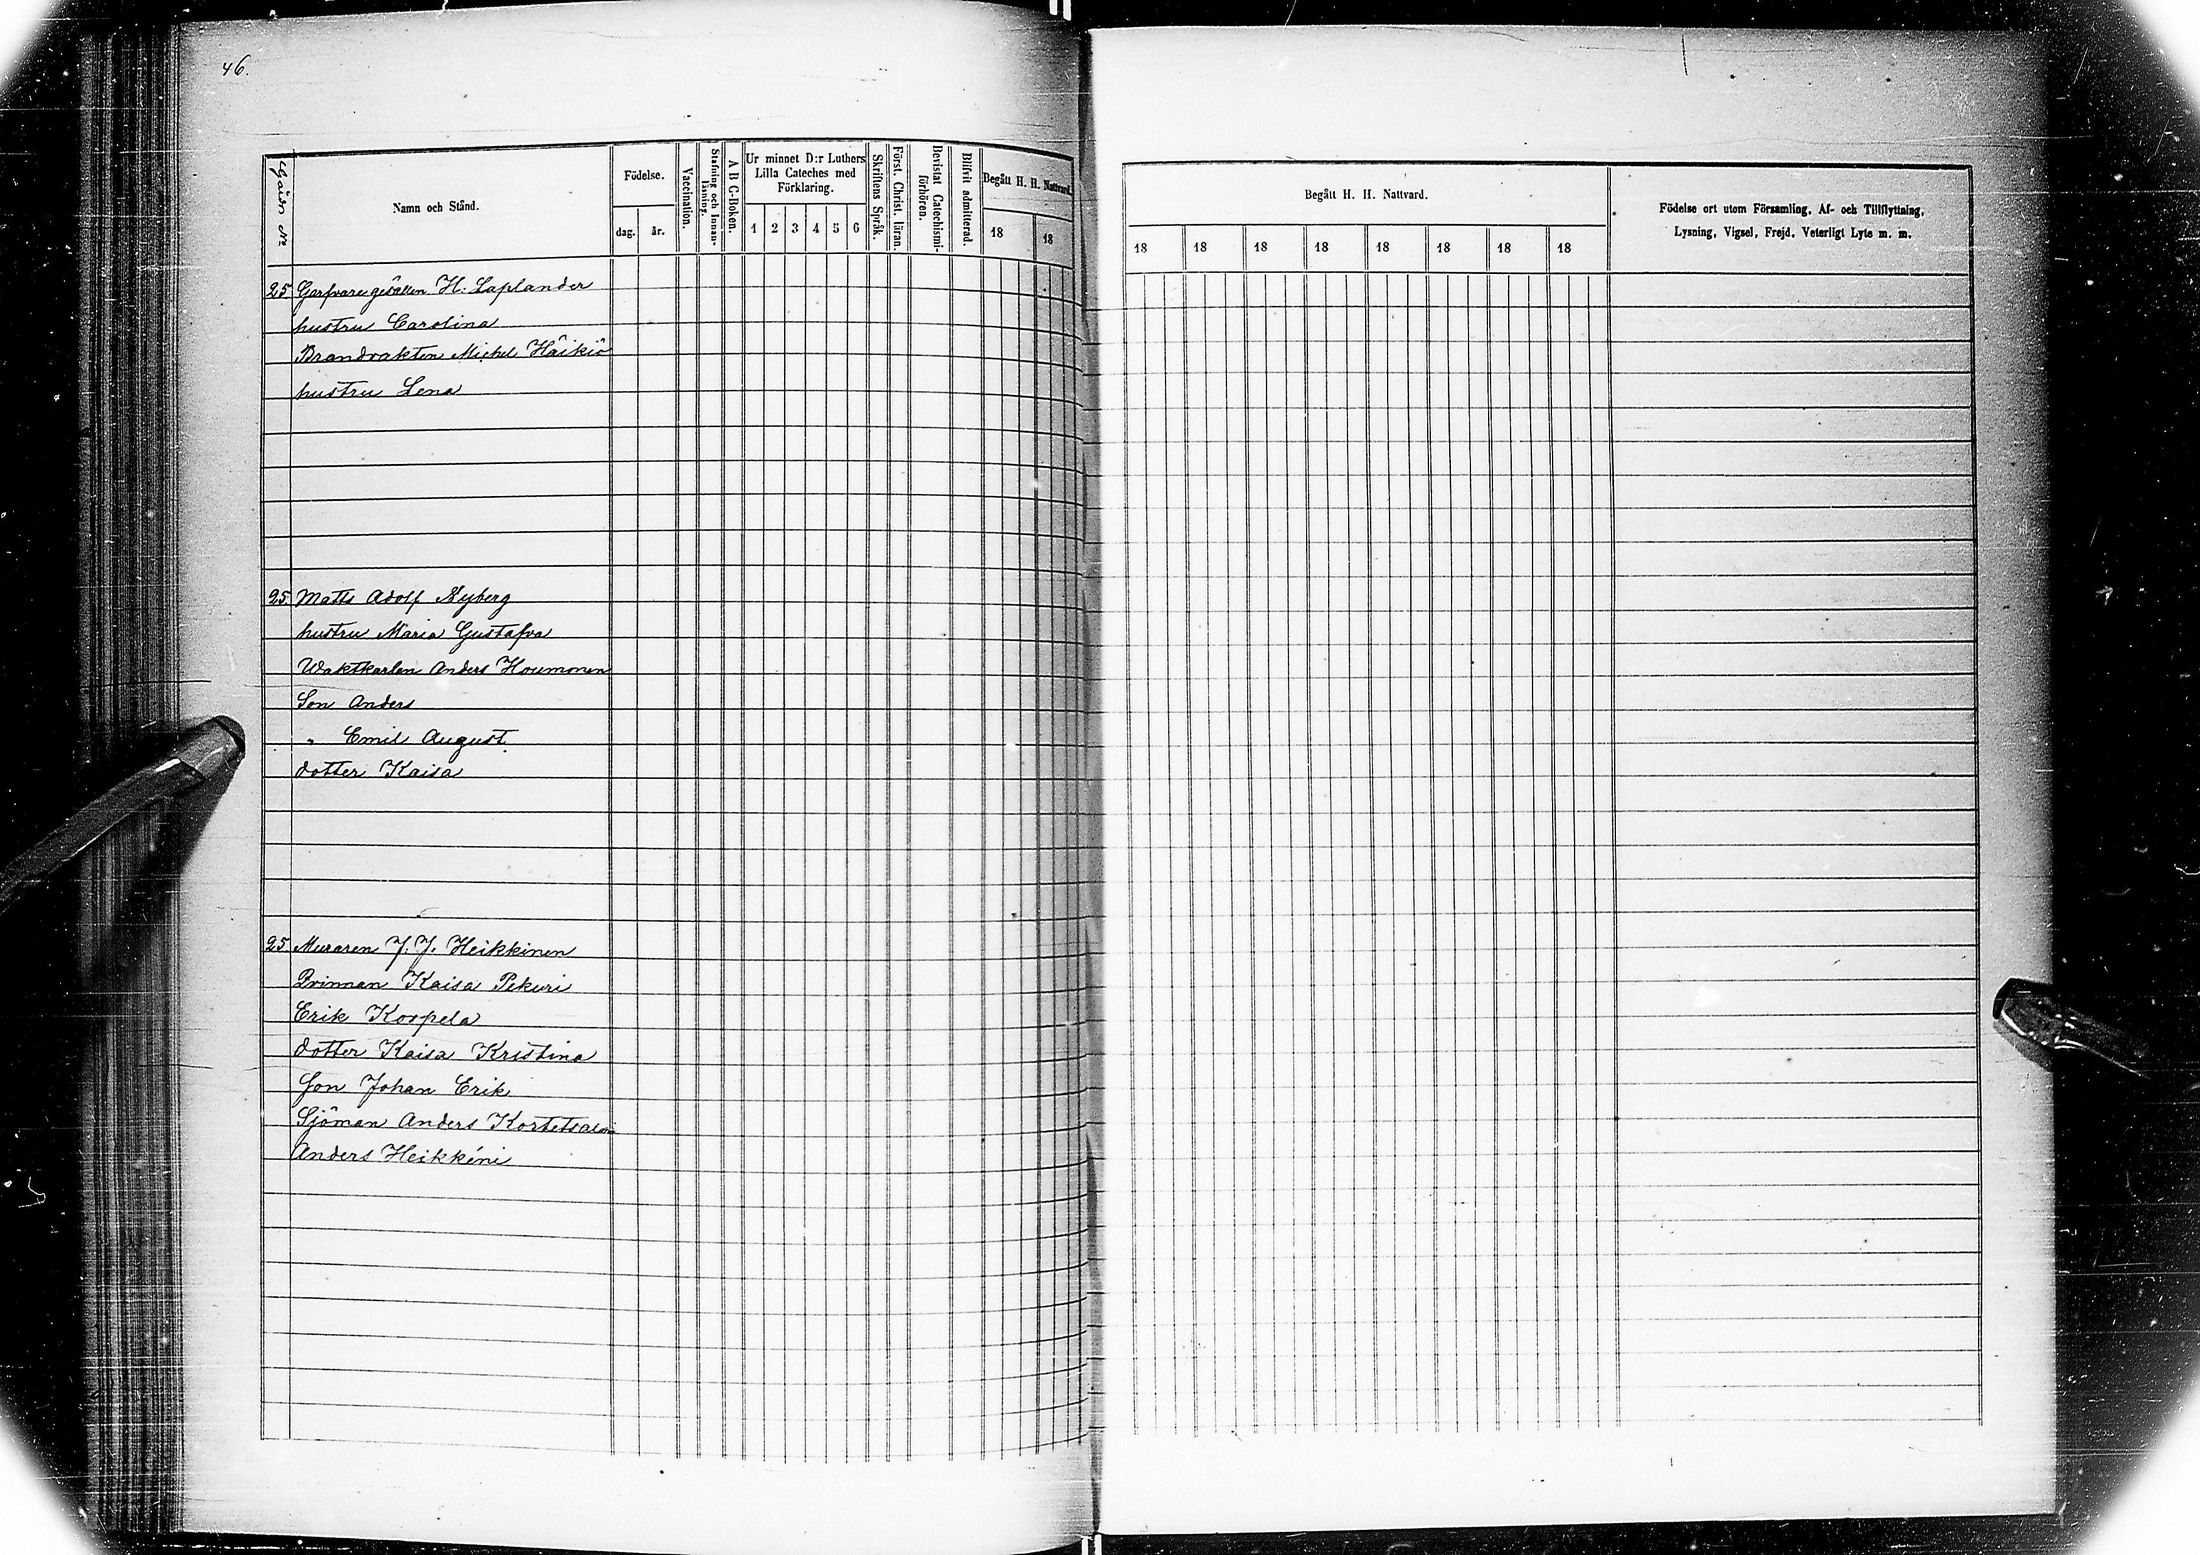 46.
Gård №
Namn och Stånd.
Födelse.
dag. år.
Vaccination.
Stafning och Innanläsning.
A B C-Boken.
Ur minnet D:r Luthers
Lilla Cateches med
Förklaring.
1 2 3 4 5 6
Skriftens Språk.
Först. Christ. läran.
Bevistat Catechismi-
förhören.
Blifvit admitterad.
Begått H. H. Nattvard.
18 18
Begått H. H. Nattvard.
18 18 18 18 18 18 18 18
Födelse ort utom Församling, Af- och Tillflyttning,
Lysning, Vigsel, Frejd, Veterligt Lyte m. m.
25 Garfvare gesällen H: Laplander
hustru Carolina
Brandvakten Michel Häikiö
hustru Lena
25. Matts Adolf Nyberg
hustru Maria Gustafva
Waktkarlen Anders Houmonen
Son Anders
" Emil August
dotter Kaisa
25 Muraren J. J. Heikkinen
Qvinnan Kaisa Pekuri
Erik Korpela
dotter Kaisa Kristina
Son Johan Erik
Sjöman Anders
Anders Heikkini